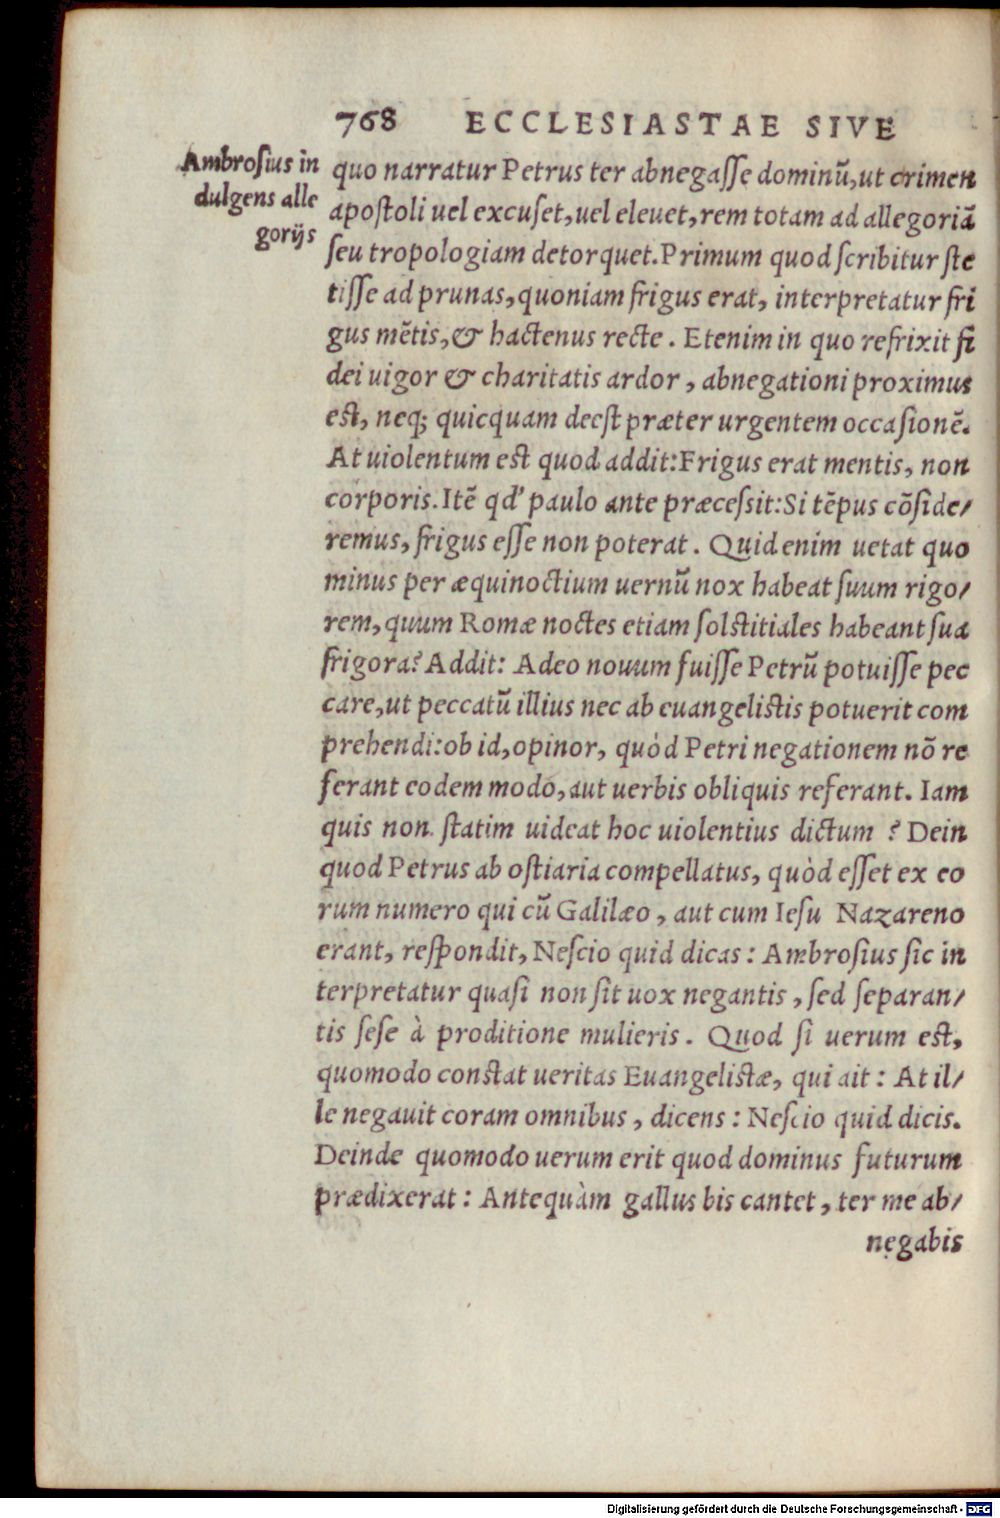 768 ECCLESIASTAE SIVE
Ambrosius in
dulgens alle
gorijs
quo narratur Petrus ter abnegasse dominũ,ut crimen
apostoli uel excuset,uel eleuet,rem totam ad allegoriã
seu tropologiam detorquet.Primum quod scribitur ste
tisse ad prunas,quoniam frigus erat, interpretatur fri
gus mẽtis,& hactenus recte. Etenim in quo refrixit fi
dei uigor & charitatis ardor, abnegationi proximus
est, neq; quicquam deest præter urgentem occasionẽ.
At uiolentum est quod addit:Frigus erat mentis, non
corporis.Itẽ qd' paulo ante præcessit:Si tẽpus cõside/
remus, frigus esse non poterat. Quid enim uetat quo
minus per æquinoctium uernũ nox habeat suum rigo/
rem, quum Romæ noctes etiam solstitiales habeant sua
frigora? Addit: Adeo nouum fuisse Petrũ potuisse pec
care,ut peccatũ illius nec ab euangelistis potuerit com
prehendi:ob id,opinor, quòd Petri negationem nõ re
ferant eodem modo, aut uerbis obliquis referant. Iam
quis non statim uideat hoc uiolentius dictum ? Dein
quod Petrus ab ostiaria compellatus, quòd esset ex eo
rum numero qui cũ Galilæo, aut cum Iesu Nazareno
erant, respondit, Nescio quid dicas: Ambrosius sic in
terpretatur quasi non sit uox negantis, sed separan/
tis sese à proditione mulieris. Quod si uerum est,
quomodo constat ueritas Euangelistæ, qui ait: At il/
le negauit coram omnibus, dicens: Nescio quid dicis.
Deinde quomodo uerum erit quod dominus futurum
prædixerat: Antequàm gallus bis cantet, ter me ab/
negabis
Digitalisierung gefördert durch die Deutsche Forschungsgemeinschaft - DFG